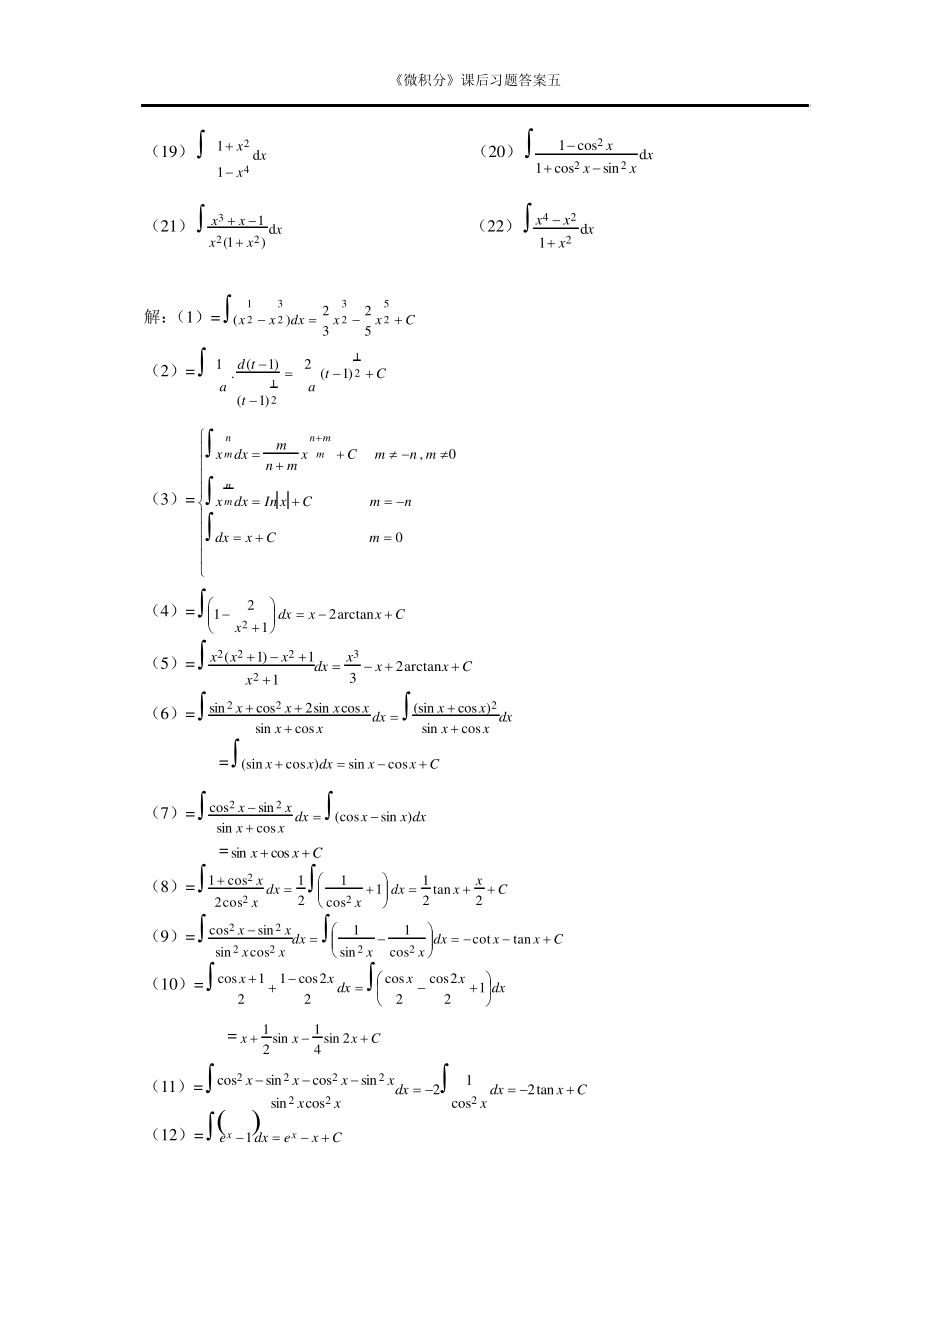 《微积分》课后习题答案五
（19）∫ (1+x²)/(1−x⁴) dx （20）∫ (1−cos² x)/(1+cos² x−sin² x) dx
（21）∫ (x³+x−1)/(x²(1+x²)) dx （22）∫ (x⁴−x²)/(1+x²) dx
解：（1）=∫(x^(1/2) − x^(3/2))dx = 2/3 x^(3/2) − 2/5 x^(5/2) + C
（2）=∫ 1/a · d(t−1)/(t−1)^(1/2) = 2/a (t−1)^(1/2) + C
∫x^(n/m) dx = m/(n+m) x^((n+m)/m) + C m ≠ −n , m ≠0
（3）= { ∫x^(n/m) dx = In|x| + C m = −n
∫dx = x + C m = 0
（4）=∫(1− 2/(x²+1)) dx = x − 2arctan x + C
（5）=∫ (x²(x²+1) − x² +1)/(x²+1) dx = x³/3 − x + 2arctan x + C
（6）=∫ (sin² x + cos² x + 2sin x cos x)/(sin x + cos x) dx = ∫ (sin x + cos x)²/(sin x + cos x) dx
=∫(sin x + cos x)dx = sin x − cos x + C
（7）=∫ (cos² x − sin² x)/(sin x + cos x) dx = ∫(cos x − sin x)dx
= sin x + cos x + C
（8）=∫ (1+cos² x)/(2cos² x) dx = 1/2 ∫(1/(cos² x) +1) dx = 1/2 tan x + x/2 + C
（9）=∫ (cos² x − sin² x)/(sin² x cos² x) dx = ∫(1/(sin² x) − 1/(cos² x)) dx = −cot x − tan x + C
（10）=∫ (cos x +1)/2 + (1−cos 2x)/2 dx = ∫(cos x/2 − cos 2x/2 +1) dx
= x + 1/2 sin x − 1/4 sin 2x + C
（11）=∫ (cos² x − sin² x − cos² x − sin² x)/(sin² x cos² x) dx = −2∫ 1/(cos² x) dx = −2 tan x + C
（12）=∫(eˣ −1)dx = eˣ − x + C